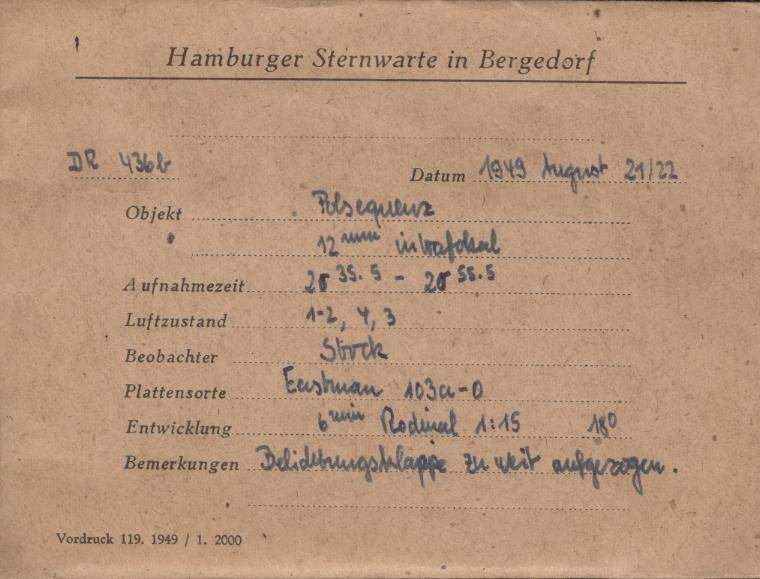 Hamburger Sternwarte in Bergedorf
DR 436b Datum 1949 August 21/22
Objekt Polsequenz
12 mm intrafokal
Aufnahmezeit 20 35.5 - 20 55.5
Luftzustand 1-2, 4, 3
Beobachter Stock
Plattensorte Eastman 103a-O
Entwicklung 6 min Rodinal 1:15 18°
Bemerkungen Belichtungsklappe zu weit aufgezogen.
Vordruck 119. 1949 / 1. 2000